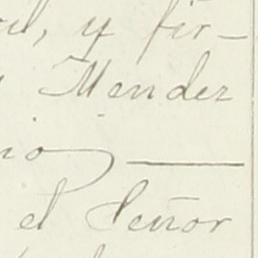 y fir-
Mendez
el Señor